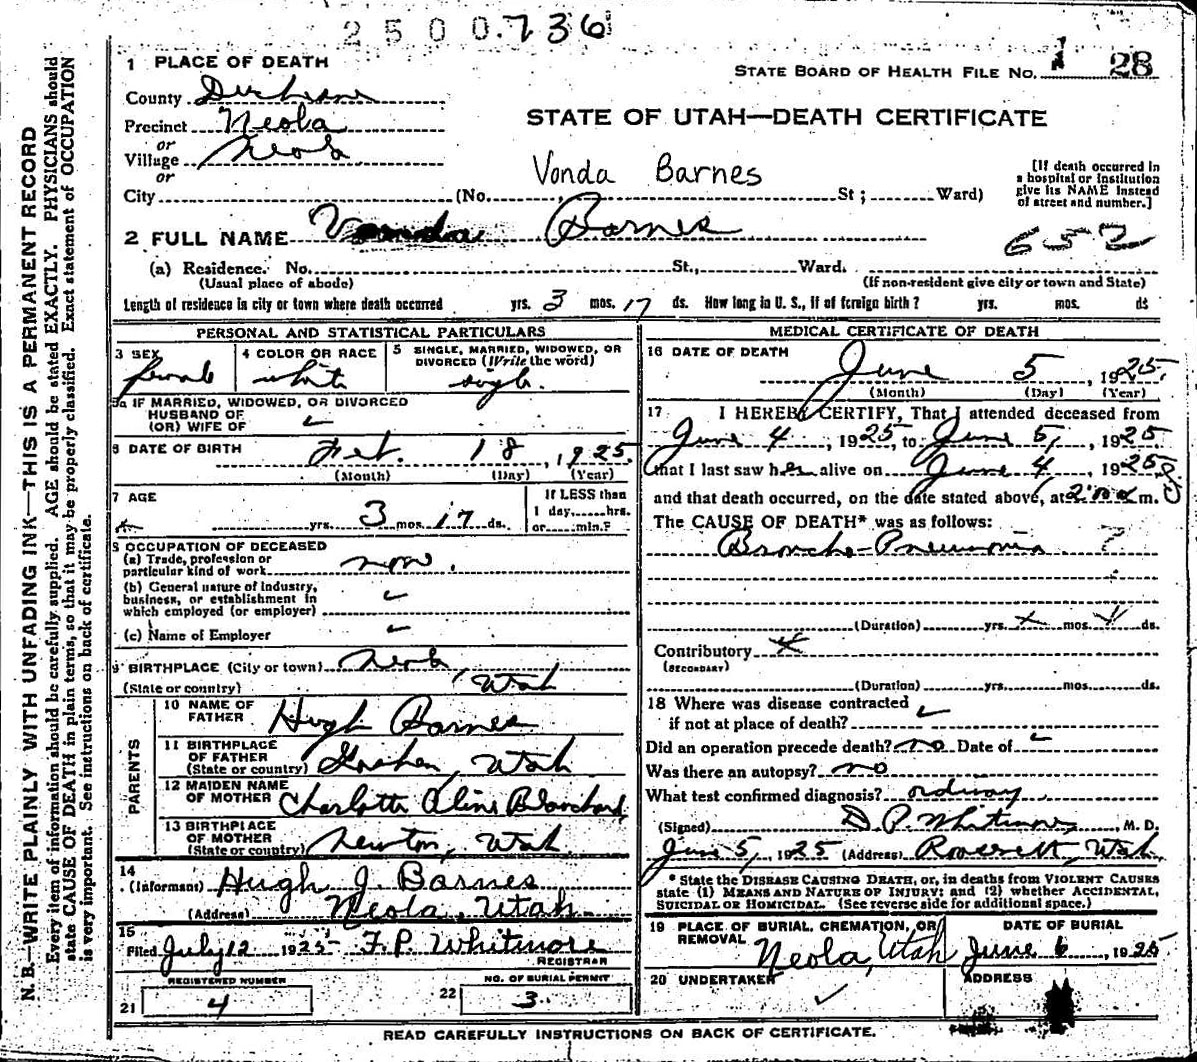 2500736
1 PLACE OF DEATH
STATE BOARD OF HEALTH FILE NO. 1 28
County Duchesne
STATE OF UTAH—DEATH CERTIFICATE
Precinct Neola
or
Village Neola
or
Vonda Barnes
[If death occurred in a hospital or institution give its NAME instead of street and number.]
City (No. St; Ward)
2 FULL NAME Vonda Barnes
652
(a) Residence. No. St., Ward.
(Usual place of abode) (If non-resident give city or town and State)
Length of residence in city or town where death occurred yrs. 3 mos. 17 ds. How long in U. S., if of foreign birth? yrs. mos. ds
PERSONAL AND STATISTICAL PARTICULARS
3 SEX
female
4 COLOR OR RACE
white
5 SINGLE, MARRIED, WIDOWED, OR DIVORCED (Write the word)
single
5a IF MARRIED, WIDOWED, OR DIVORCED
HUSBAND OF
(OR) WIFE OF
6 DATE OF BIRTH Feb. 18, 1925.
(Month) (Day) (Year)
7 AGE
yrs. 3 mos. 17 ds.
If LESS than
1 day, hrs.
or min.?
8 OCCUPATION OF DECEASED
(a) Trade, profession or
particular kind of work
(b) General nature of industry,
business, or establishment in
which employed (or employer)
(c) Name of Employer
9 BIRTHPLACE (City or town) Neola
(State or country) Utah
PARENTS
10 NAME OF FATHER Hugh Barnes
11 BIRTHPLACE OF FATHER
(State or country) Goshen, Utah
12 MAIDEN NAME OF MOTHER Charlotte Aline Blanchard
13 BIRTHPLACE OF MOTHER
(State or country) Newton, Utah
14
(Informant) Hugh J. Barnes
(Address) Neola, Utah
15
Filed July 12 1925 F.P. Whitmore
REGISTRAR
REGISTERED NUMBER
21 4
NO. OF BURIAL PERMIT
22 3
MEDICAL CERTIFICATE OF DEATH
16 DATE OF DEATH
June 5, 1925.
(Month) (Day) (Year)
17 I HEREBY CERTIFY, That I attended deceased from
June 4, 1925, to June 5, 1925
that I last saw her alive on June 4, 1925
and that death occurred, on the date stated above, at m.
The CAUSE OF DEATH* was as follows:
Broncho-Pneumonia ?
(Duration) yrs. mos. ds.
Contributory
(SECONDARY)
(Duration) yrs. mos. ds.
18 Where was disease contracted
if not at place of death?
Did an operation precede death? no Date of
Was there an autopsy? no
What test confirmed diagnosis? ordinary
(Signed) Whitmore, M. D.
June 5, 1925 (Address) Roosevelt, Utah
* State the DISEASE CAUSING DEATH, or, in deaths from VIOLENT CAUSES
state (1) MEANS AND NATURE OF INJURY; and (2) whether ACCIDENTAL,
SUICIDAL OR HOMICIDAL. (See reverse side for additional space.)
19 PLACE OF BURIAL, CREMATION, OR REMOVAL
Neola, Utah
DATE OF BURIAL
June 6, 1925
20 UNDERTAKER
ADDRESS
READ CAREFULLY INSTRUCTIONS ON BACK OF CERTIFICATE.
N. B.—WRITE PLAINLY WITH UNFADING INK—THIS IS A PERMANENT RECORD
Every item of information should be carefully supplied. AGE should be stated EXACTLY. PHYSICIANS should
state CAUSE OF DEATH in plain terms, so that it may be properly classified. Exact statement of OCCUPATION
is very important. See instructions on back of certificate.